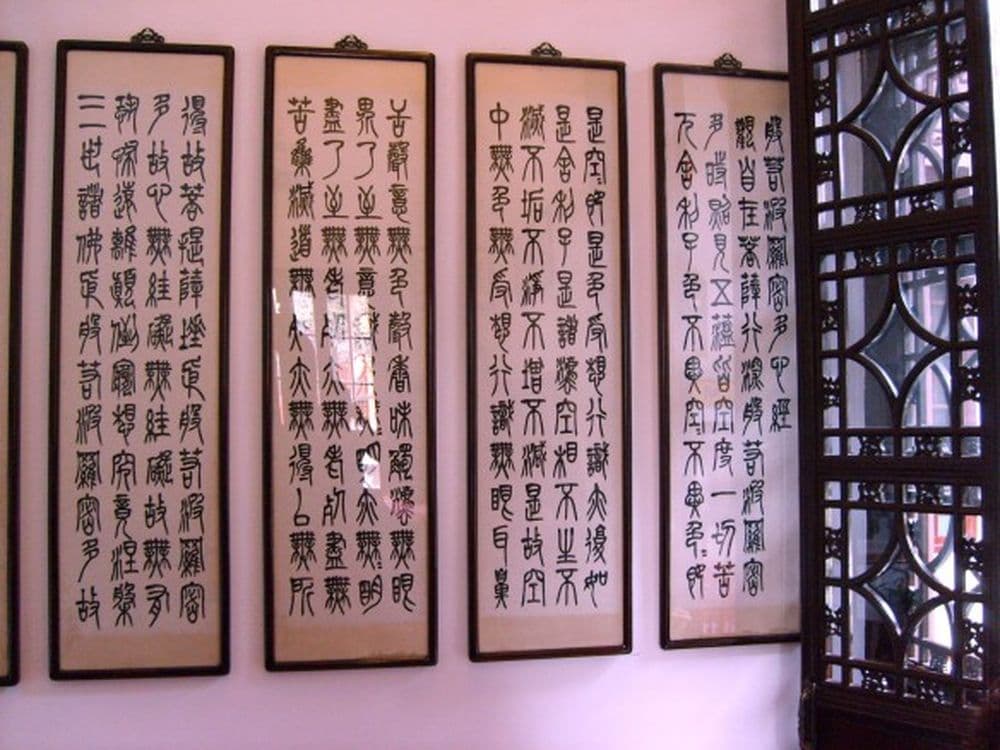 般若波羅密多心經
觀自在菩薩行深般若波羅密
多時照見五蘊皆空度一切苦
厄舍利子色不異空〻不異色〻即
是空〻即是色受想行識亦復如
是舍利子是諸法空相不生不
滅不垢不淨不增不減是故空
中無色無受想行識無眼耳鼻
舌身意無色聲香味觸法無眼
界乃至無意識界無明亦無〻明
盡乃至無老死亦無老死盡無
苦集滅道無智亦無得以無所
得故菩提薩埵依般若波羅密
多故心無罣礙無罣礙故無有
恐怖遠離顛倒夢想究竟涅槃
三世諸佛依般若波羅密多故